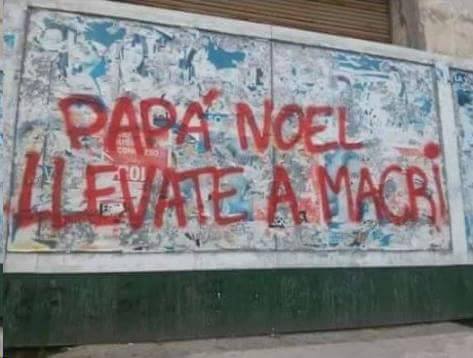 PAPÁ NOEL
LLEVATE A MACRi